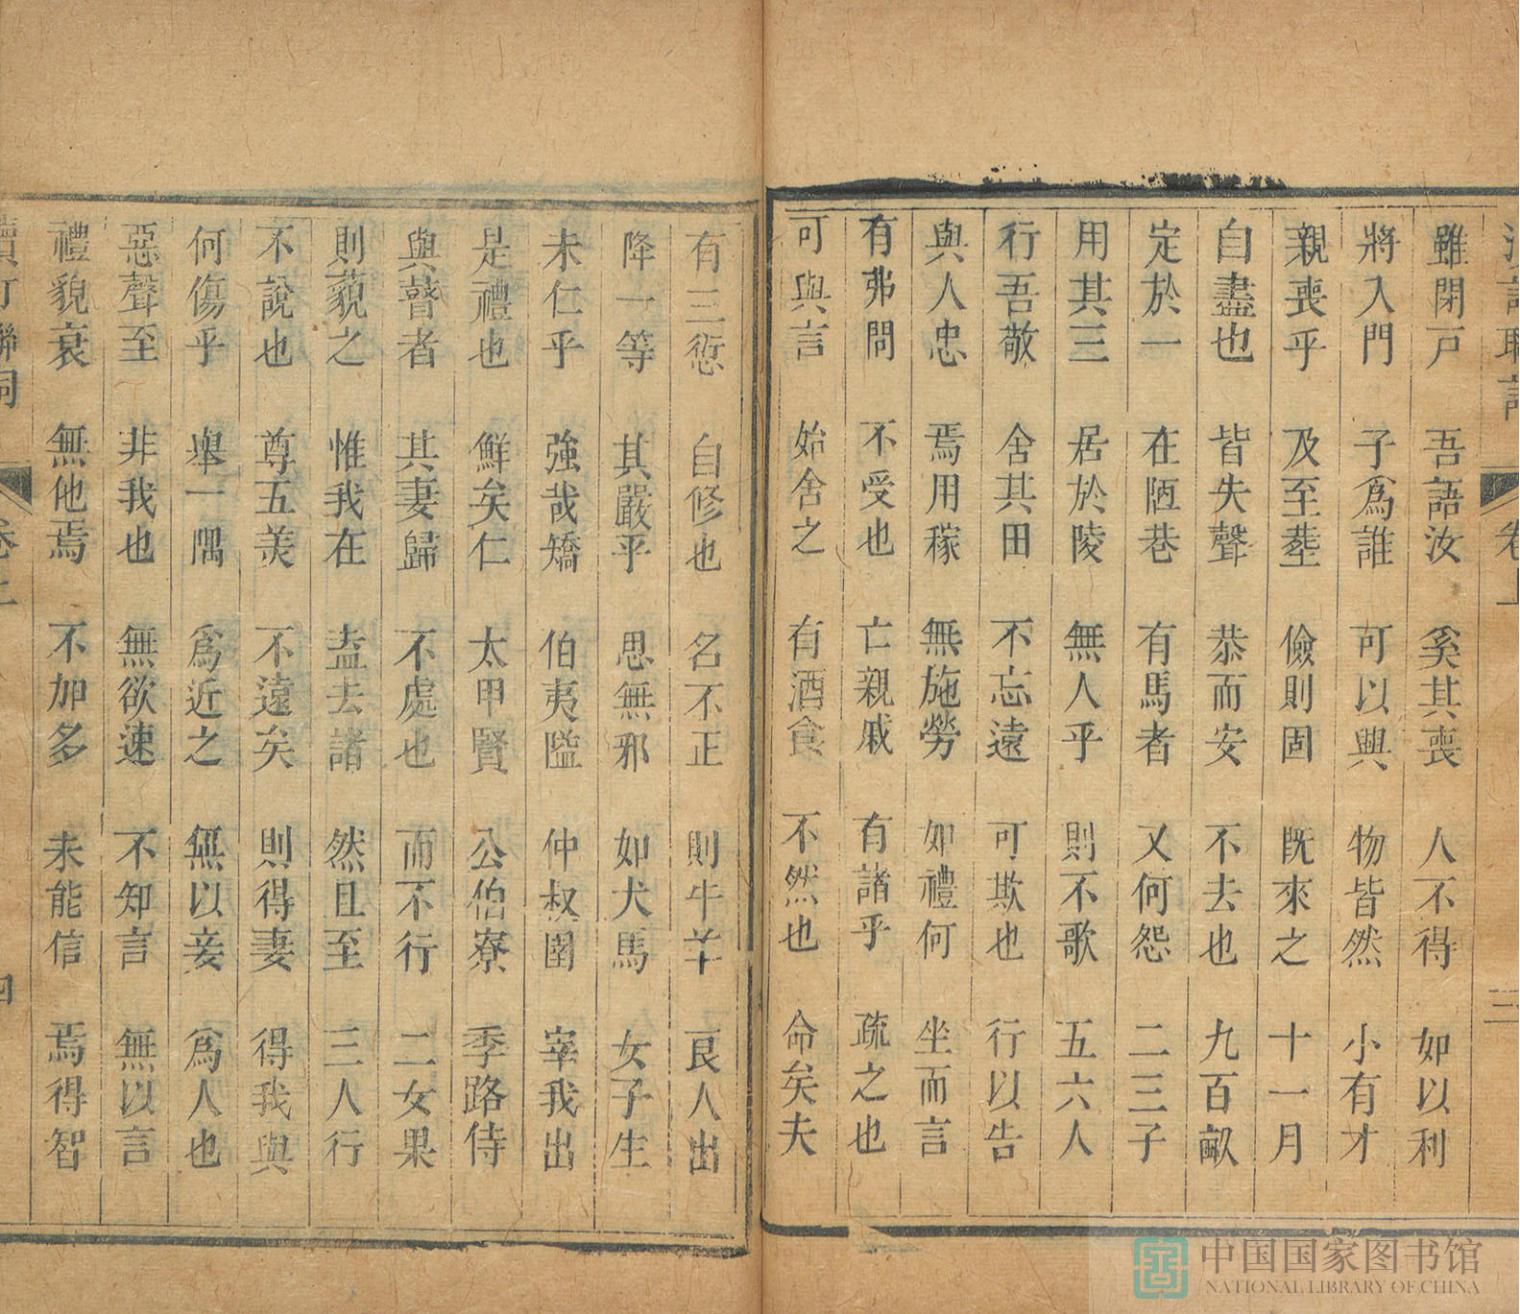 雖閉戸 吾語汝 奚其喪 人不得 如以利
將入門 子爲誰 可以興 物皆然 小有才
親喪乎 及至塟 儉則固 旣來之 十一月
自盡也 皆失聲 恭而安 不去也 九百畝
定於一 在陋巷 有馬者 又何怨 二三子
用其三 居於陵 無人乎 則不歌 五六人
行吾敬 舍其田 不忘遠 可欺也 行以告
與人忠 焉用稼 無施勞 如禮何 坐而言
有弗問 不受也 亡親戚 有諸乎 疏之也
可與言 始舍之 有酒食 不然也 命矣夫
卷上
三
有三愆 自修也 名不正 則牛羊 良人出
降一等 其嚴乎 思無邪 如犬馬 女子生
未仁乎 強哉矯 伯夷隘 仲叔圉 宰我出
是禮也 鮮矣仁 太甲賢 公伯寮 季路侍
與瞽者 其妻歸 不處也 而不行 二女果
則藐之 惟我在 盍去諸 然且至 三人行
不說也 尊五美 不遠矣 則得妻 得我與
何傷乎 舉一隅 爲近之 無以妾 爲人也
惡聲至 非我也 無欲速 不知言 無以言
禮貌衰 無他焉 不加多 未能信 焉得智
卷上
四
中国国家图书馆
NATIONAL LIBRARY OF CHINA